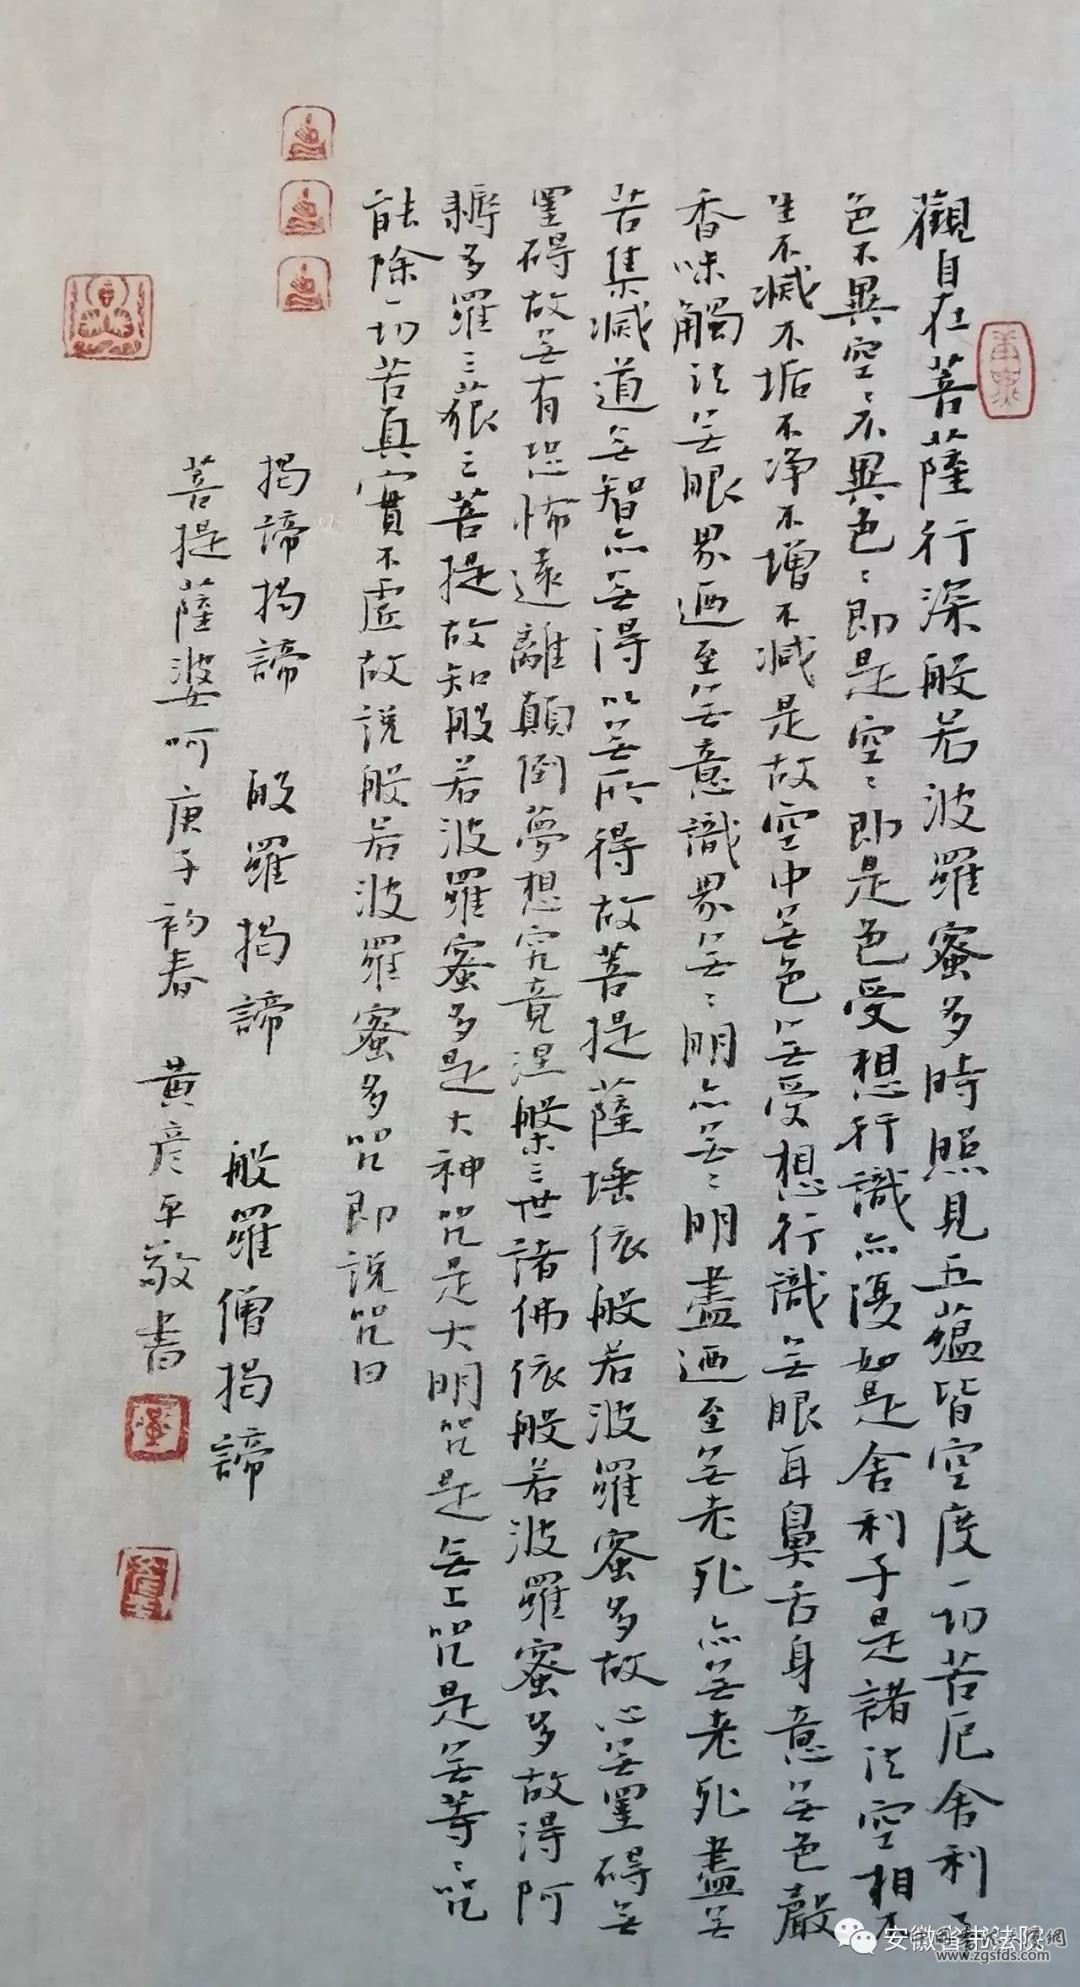 觀自在菩薩行深般若波羅蜜多時照見五蘊皆空度一切苦厄舍利子
色不異空〻不異色〻即是空〻即是色受想行識亦復如是舍利子是諸法空相不
生不滅不垢不净不增不減是故空中無色無受想行識無眼耳鼻舌身意無色聲
香味觸法無眼界迺至無意識界無〻明亦無〻明盡迺至無老死亦無老死盡無
苦集滅道無智亦無得以無所得故菩提薩埵依般若波羅蜜多故心無罣碍無
罣碍故無有恐怖遠離顛倒夢想究竟涅槃三世諸佛依般若波羅蜜多故得阿
耨多羅三藐三菩提故知般若波羅蜜多是大神咒是大明咒是無上咒是無等〻咒
能除一切苦真實不虛故說般若波羅蜜多咒即說咒曰
揭諦揭諦 般羅揭諦 般羅僧揭諦
菩提薩婆呵庚子初春 黃彦平敬書
安徽省书法院
www.zgsfds.com